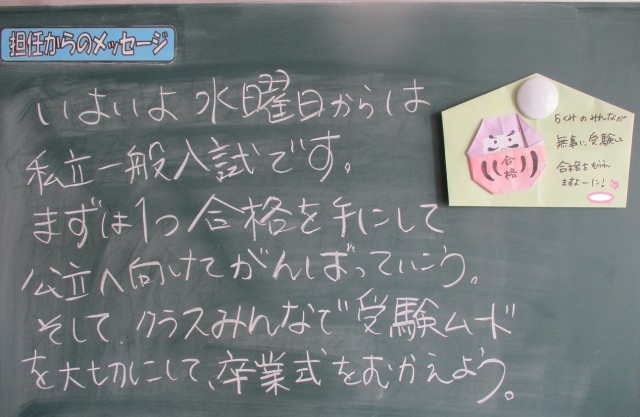 担任からのメッセージ
いよいよ水曜日からは
私立一般入試です。
まずは1つ合格を手にして
公立へ向けてがんばっていこう。
そして、クラスみんなで受験ムード
を大切にして、卒業式をむかえよう。
5くみのみんなが
無事に受験して
合格をもらえ
ますよーに!
合格